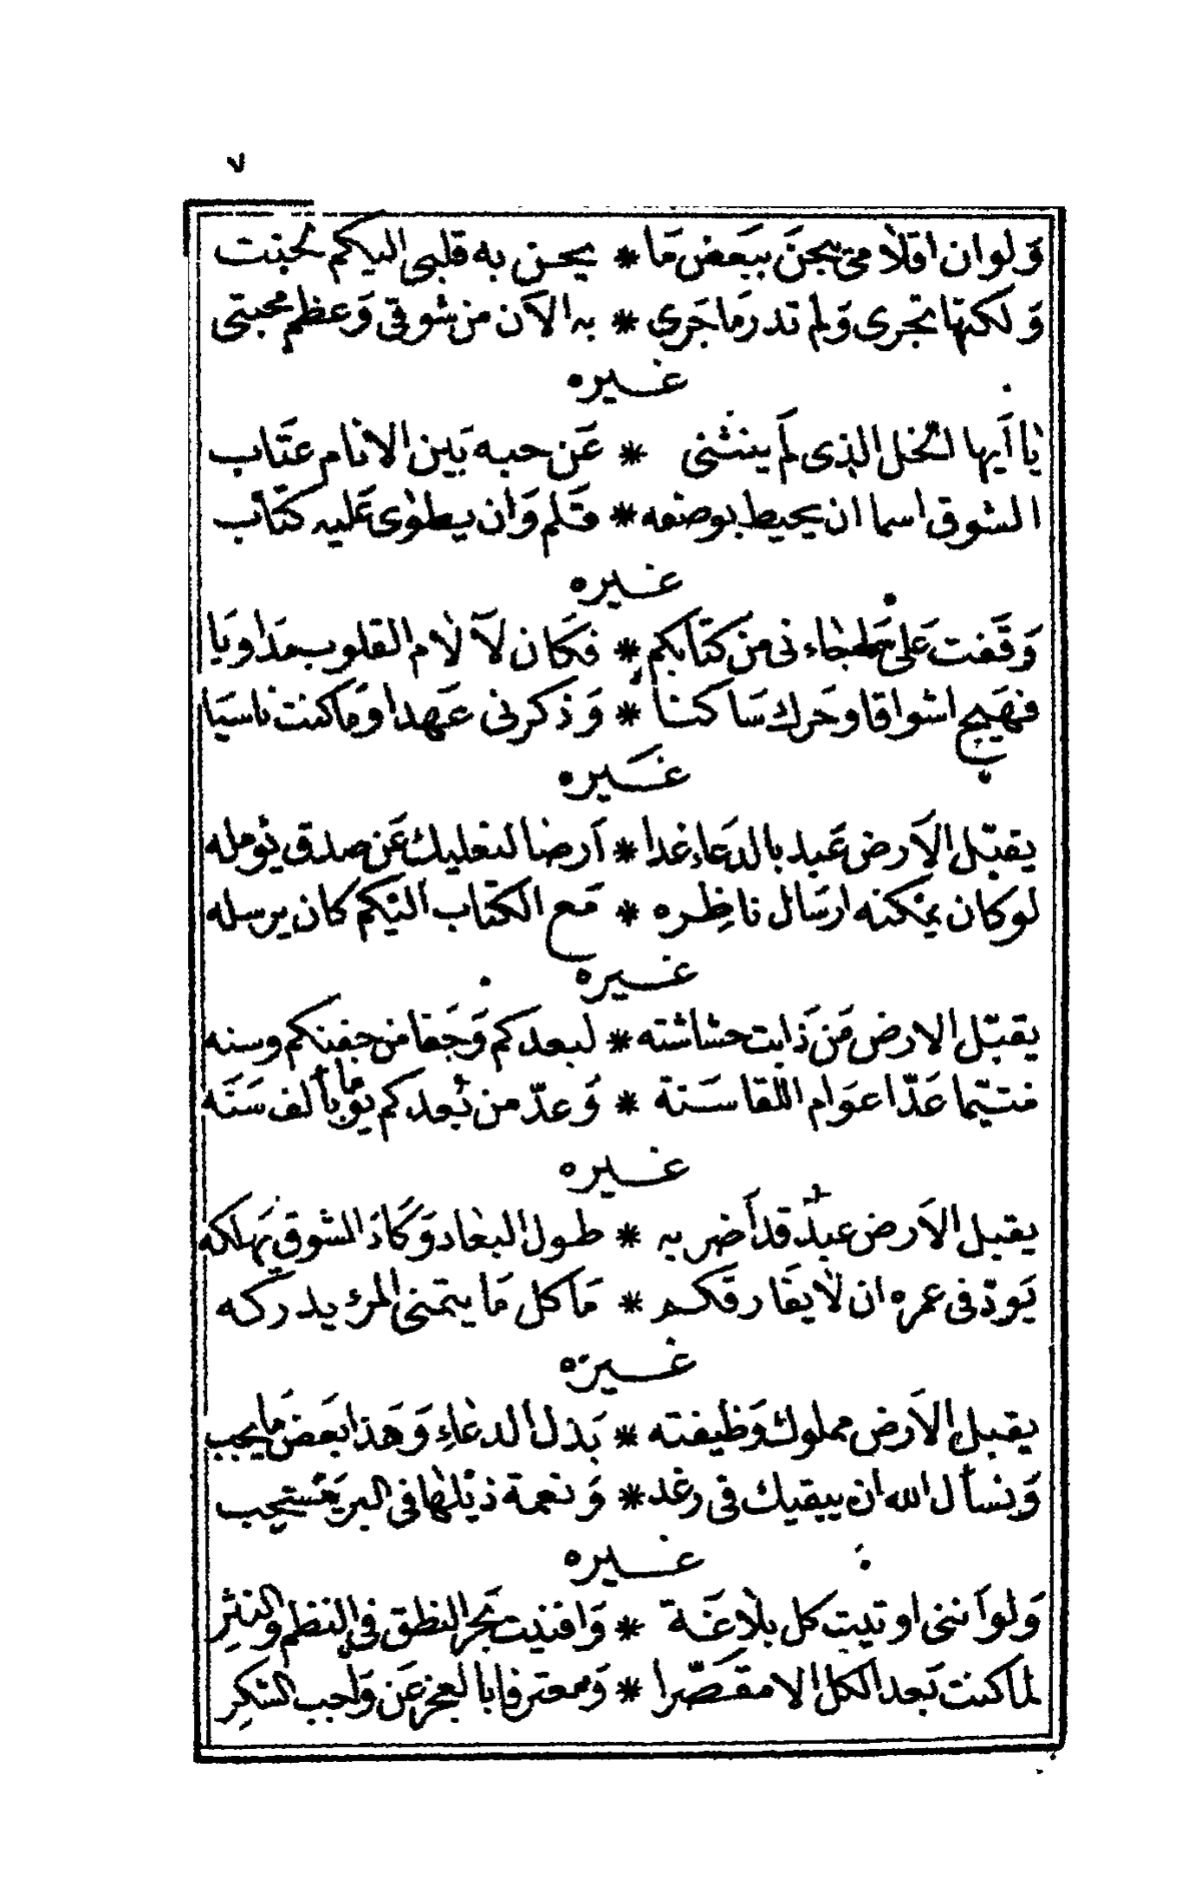 ٧
وَلو ان اقلامى يجنّ ببَعض مَا * يحن به قلبى اليكم لجنت
وَلكنها تجرى وَلم تدر مَا جَرى * به الآن من شوقى وَعظم محبتى
غيره
يا اَيها الخل الذى لَم ينثنى * عَن حبه بَين الانام عتَاب
الشوق اسما ان يحيط بوصفه * قَلم وَان يطوى عَليه كتَاب
غيره
وَقَفت عَلى خط جاء نى منَ كتَابكم * فكَان لآلام القلوب مدَاويَا
فهَيج اشواقا وحَرك سَاكنا * وَذكرنى عَهدا ومَا كنت ناسيَا
غَيره
يقبّل الاَرض عَبد بالدعَاء غدا * اَرضا لنعليك عَن صدق يؤمله
لو كان يمكنه ارسَال ناظِره * مَع الكتاب اليكم كان يرسله
غيره
يقبّل الارض مَن ذَابت حشاشته * لبعدكم وَجَفا من جفنكم وسنه
متيّما عَدّ اعوَام اللقا سَنة * وَعدّ من بُعدكم يوما بألف سَنَه
غيره
يقبل الاَرض عبدٌ قد أَضر به * طول البعاد وَكَادَ الشوق يهَلكه
يَودّ فى عمره ان لا يفَارقَكم * مَا كل مَا يتمنى المرء يدركه
غيرَه
يقبل الاَرض مملوك وَظيفته * بَذل الدعاءِ وَهَذا بَعض مَا يجب
وَنسأل الله ان يبقيك فى رغد * وَنعمة ذيلها فى البر ينسحب
غيره
وَلو اَننى اوتيت كل بلاغَة * وَافنيت بَحر النطق فى النظم والنثِر
لما كنت بَعد الكل الا مقَصّرا * وَمعترفا بالعجز عَن وَاجب الشكِر